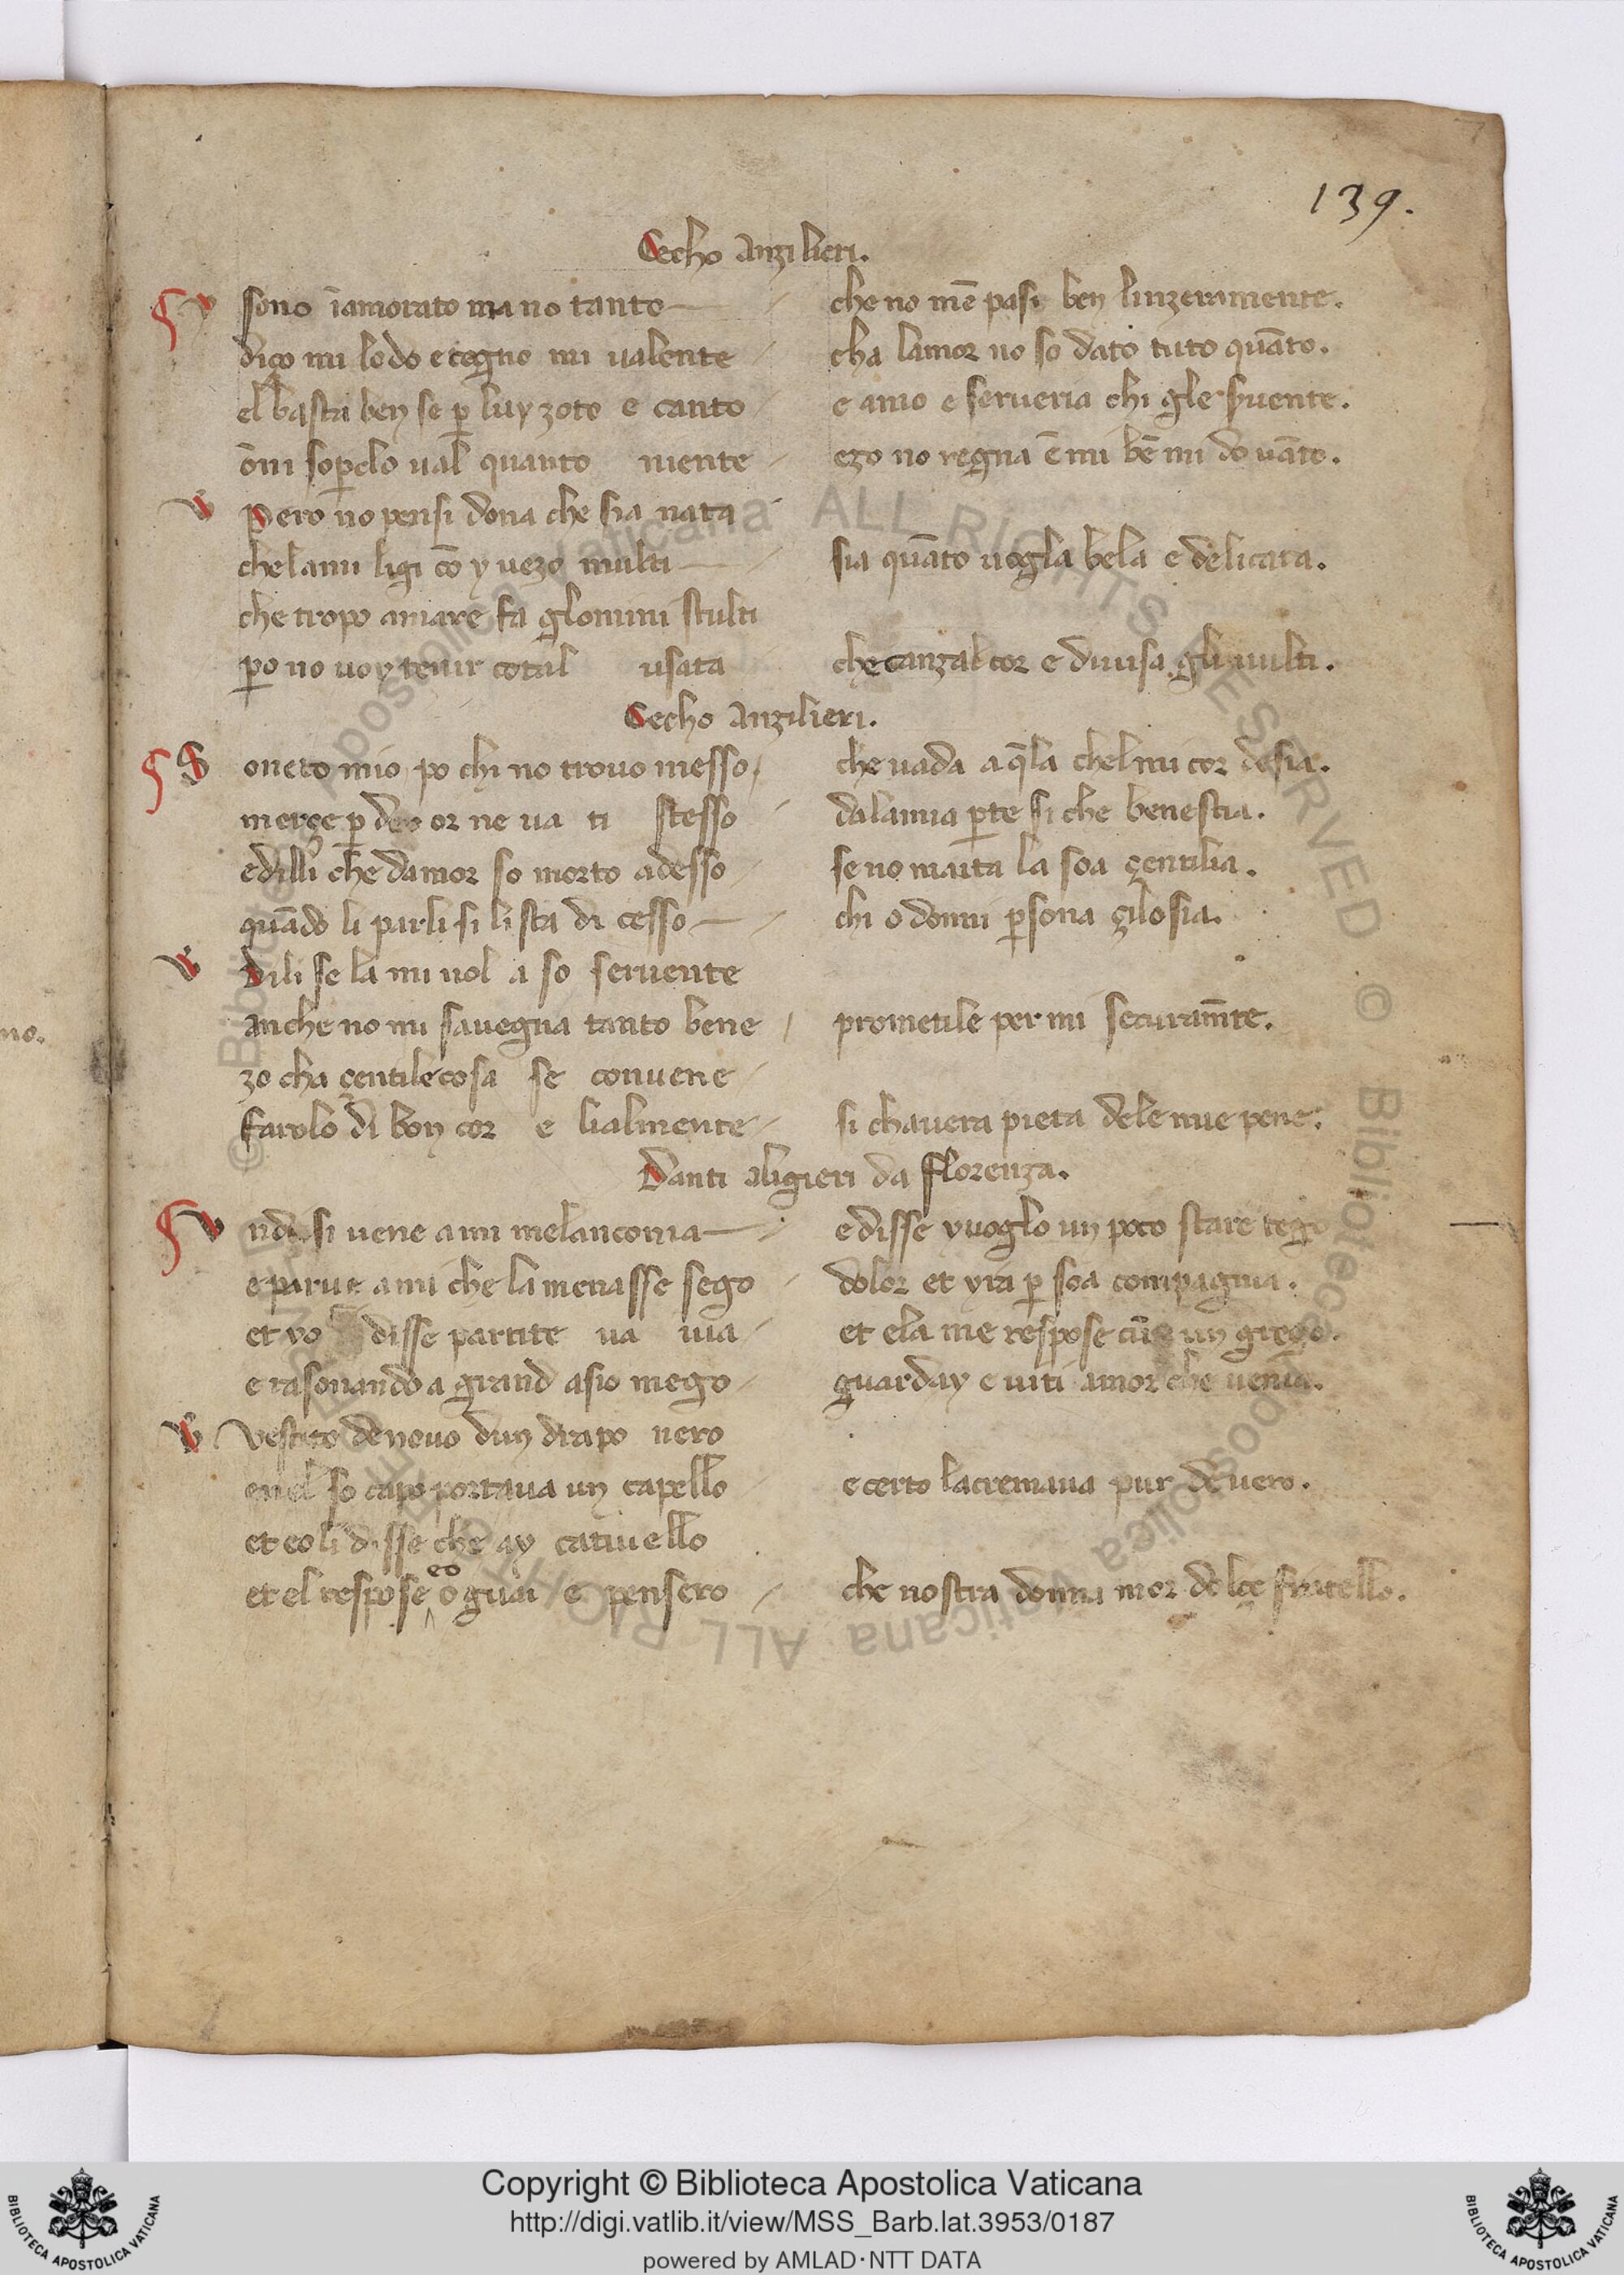 139.
Cecho anzilieri.
Y sono īamorato ma no tanto che no mē pasi ben linzeramente.
dizo mi lodo e tegno mi valente cha lamor no so dato tuto quāto.
el basta ben se p̄ luy zoto e canto e amo e serveria chi gle svente.
ōni sop̱clo val quanto niente ezo no regna ē mi bē mi do vāto.
V Pero no pensi dona che sia nata
chel ami ligi cō y vezo multi sia quāto vogla bela e delicata.
che tropo amare fa glomini stulti
p̱o no voy tenir cotal usata che canzal cor e divisa gli vulti.
Cecho anzilieri.
S oneto mio po chi no trovo messo che vada a q̄la chel mi cor desia.
merçe p̱ deo or ne va ti stesso dalamia p̱te si che bene stia.
e dilli che damor so morto adesso se no maita la soa çentilia.
quādo li parli si li sta di cesso chi o donni p̱sona çilosia.
V Dili se la mi vol a so servente
anche no mi savegna tanto bene prometile per mi securam̄te.
zo cha çentile cosa se convene
farolo di bon cor e lialmente si chavera pieta dele mie pene.
Danti aligieri da florenza.
V ndi si vene a mi melanconia e disse y voglo un poco stare tego
e parve a mi che la menasse sego dolor et yra p̱ soa compagnia.
et yo disse partite va via et ela me respose cū un grego.
e rasonando a grand asio mego guarday e viti amor che venia.
V vestito de novo dun drapo nero
en el so capo portava un capello e certo lacremava pur de vero.
et eo li disse che ay cativello
et el respose eo o guai e pensero che nostra donna mor dolce fratello.
no.
© Biblioteca Apostolica Vaticana ALL RIGHTS RESERVED © Biblioteca Apostolica Vaticana ALL RIGHTS RESERVED
Copyright © Biblioteca Apostolica Vaticana
http://digi.vatlib.it/view/MSS_Barb.lat.3953/0187
powered by AMLAD·NTT DATA
BIBLIOTECA APOSTOLICA VATICANA
BIBLIOTECA APOSTOLICA VATICANA